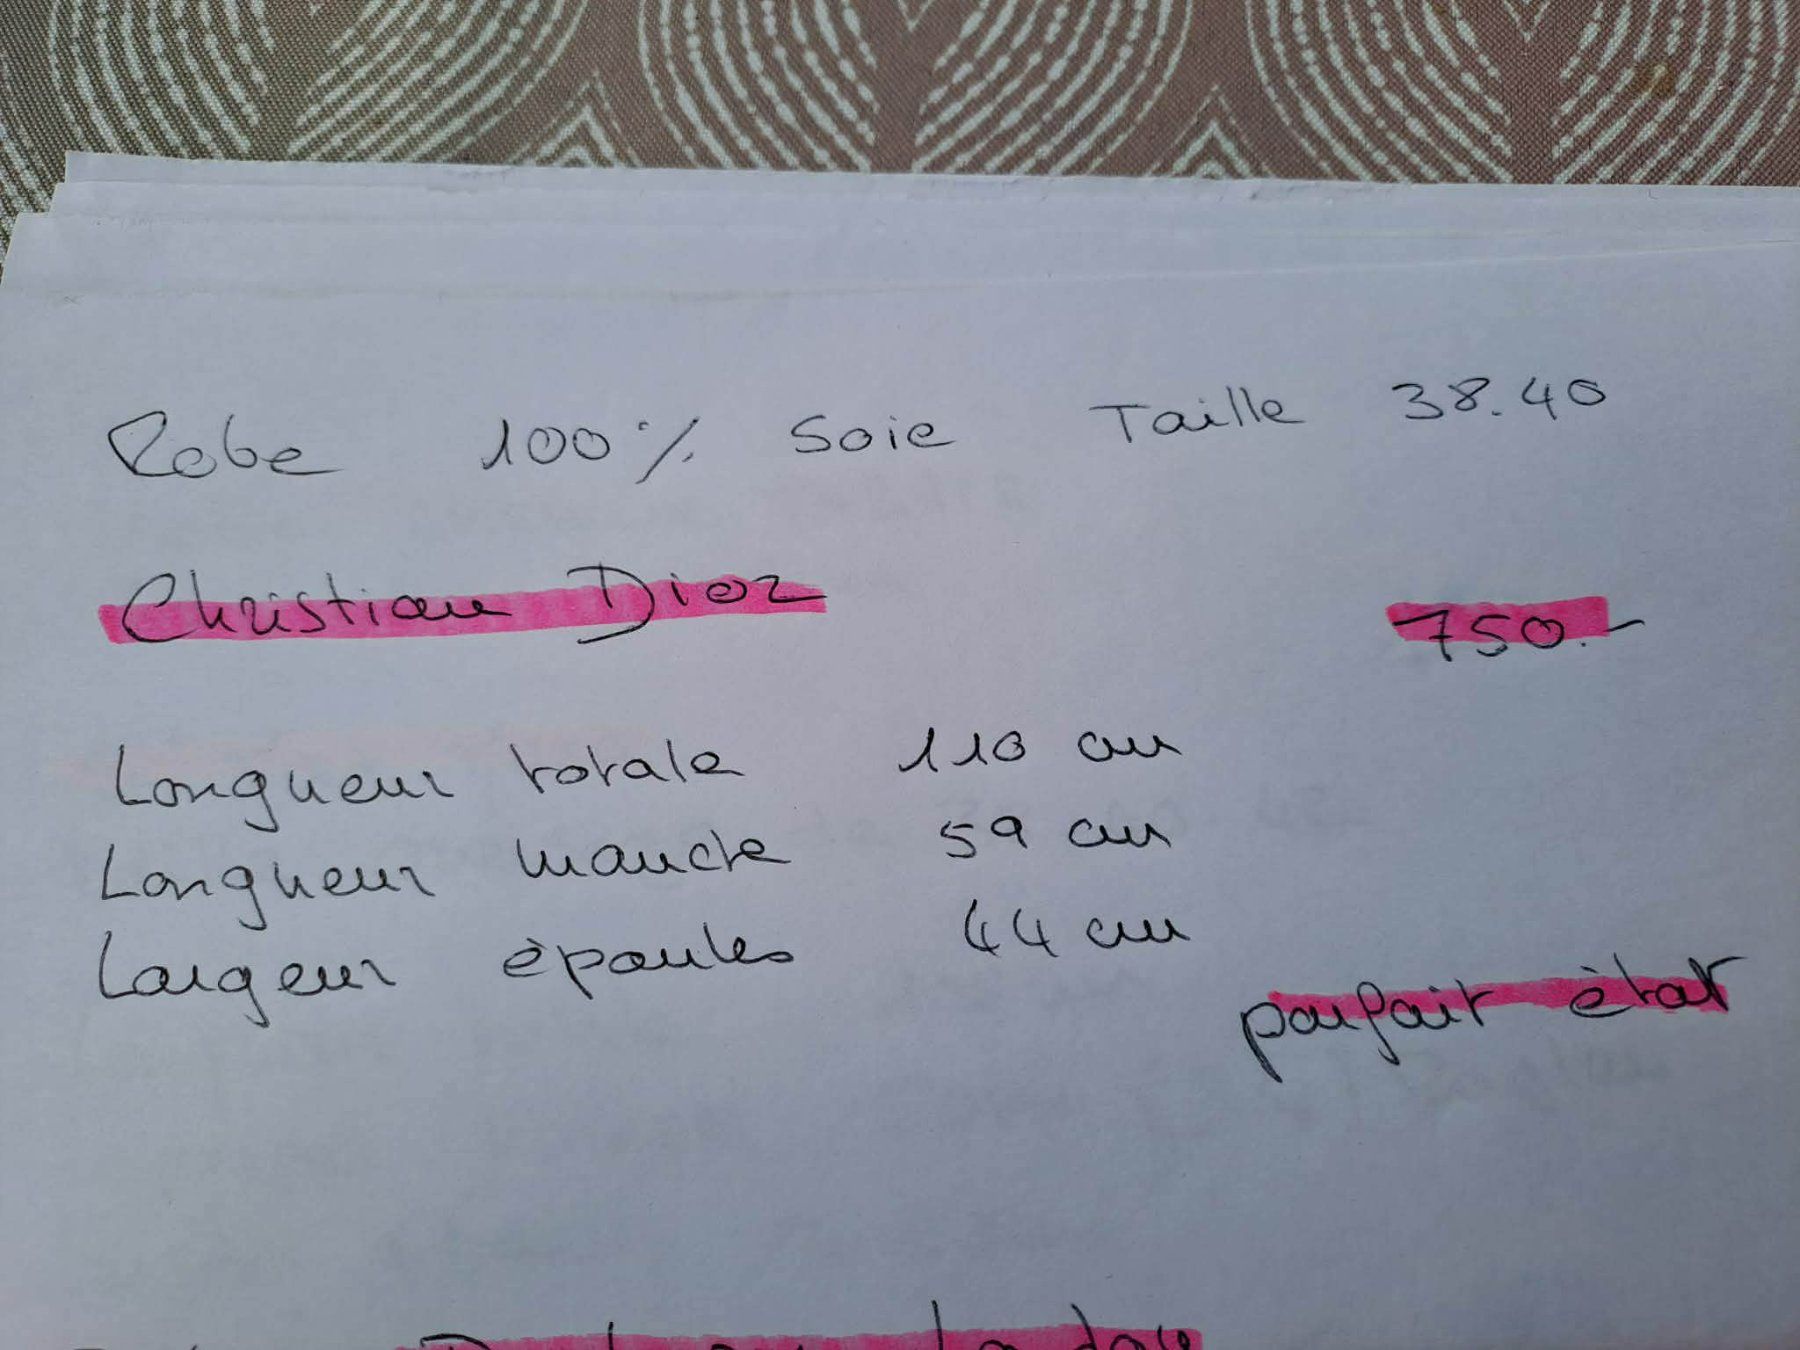 Robe 100% Soie Taille 38.40
Christian Dior 750.-
Longueur totale 110 cm
Longueur manche 59 cm
Largeur épaules 44 cm
parfait état